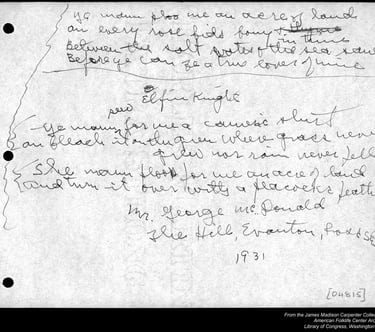 ye maun ploo me an acre o' land
an every rose
Between the salt water & the sea san
Before ye can be a true lover o' mine
Elfin Knight
sew
Ye maun for me a cameric shirt
an bleach it in the green where grass never
grew nor rain never fell
She maun for me an acre of land
and turn it over with a peacock's feath
Mr. George McDonald
The Hill, Evanton, Ross Sh
1931
[04815]
From the James Madison Carpenter Collec
American Folklife Center Arc
Library of Congress, Washington